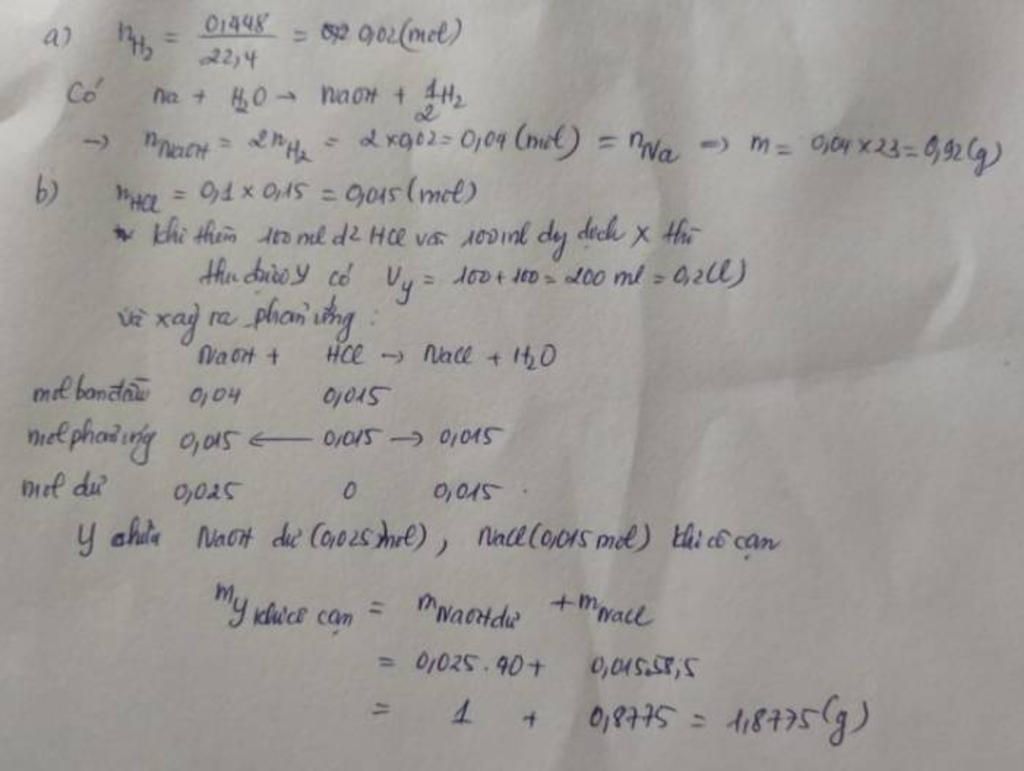 a) nH₂ = 0,448/22,4 = 0,02 (mol)
Có Na + H₂O → NaOH + 1/2 H₂
→ nNaOH = 2nH₂ = 2 x 0,02 = 0,04 (mol) = nNa => m = 0,04 x 23 = 0,92 (g)
b) nHCl = 0,1 x 0,15 = 0,015 (mol)
khi thêm 100 ml d² HCl vào 100 ml dung dịch X thì
thu được Y có Vy = 100 + 100 = 200 ml = 0,2 (l)
và xảy ra phản ứng :
NaOH + HCl → NaCl + H₂O
mol ban đầu 0,04 0,015
mol phản ứng 0,015 ← 0,015 → 0,015
mol dư 0,025 0 0,015
Y chứa NaOH dư (0,025 mol), NaCl (0,015 mol) khi cô cạn
mY khi cô cạn = mNaOH dư + mNaCl
= 0,025 . 40 + 0,015.58,5
= 1 + 0,8775 = 1,8775 (g)